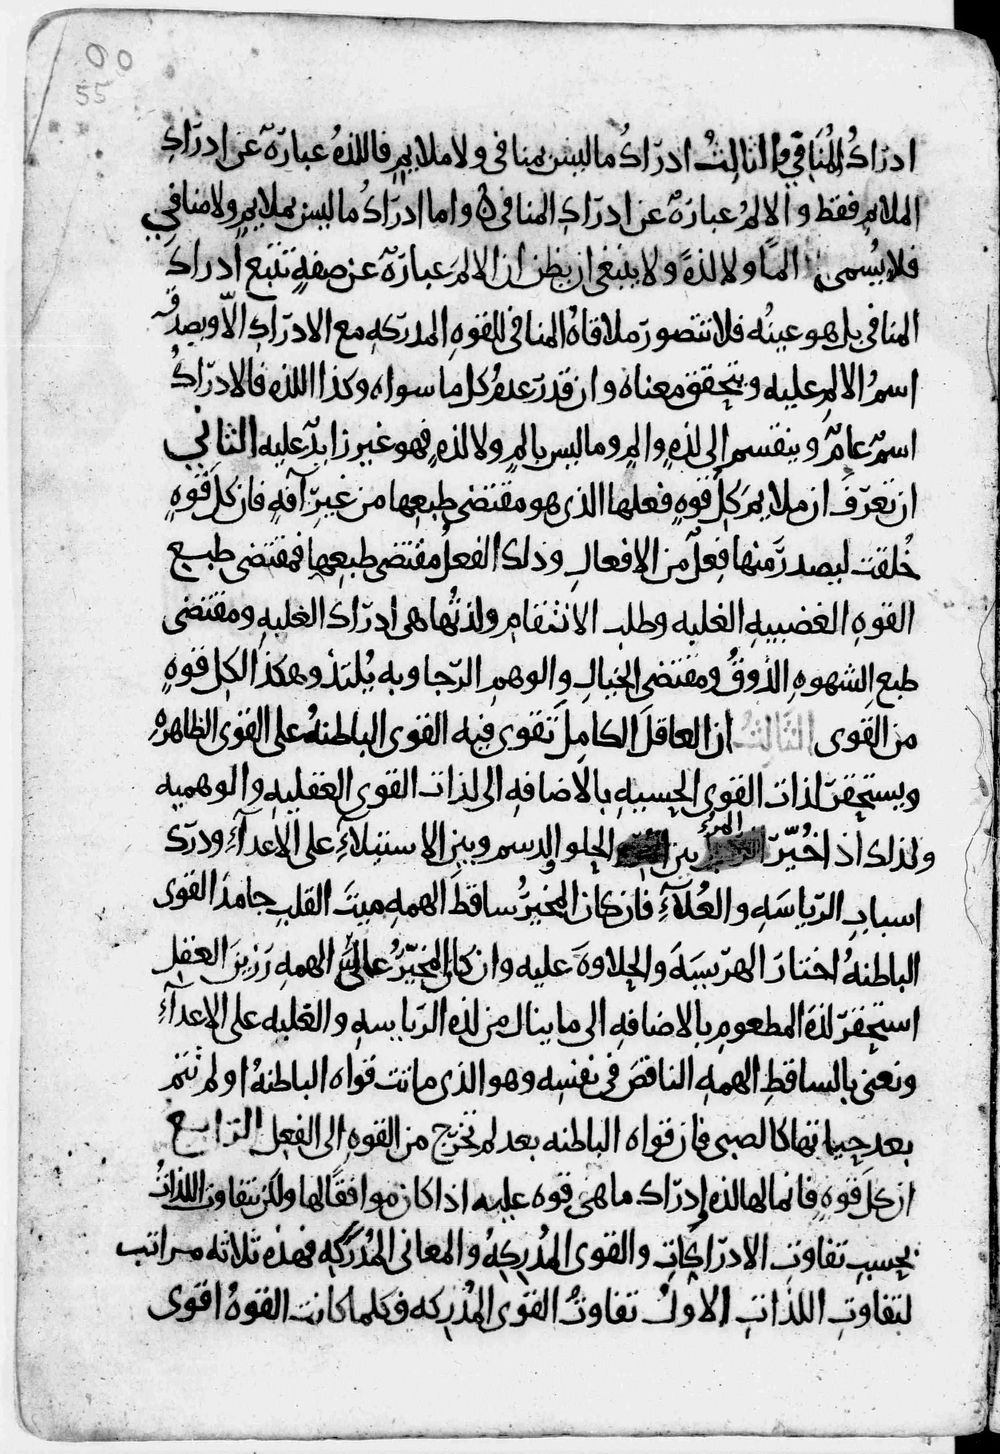 ٥٥
55
ادراكُ المُنَافِي والثالثُ ادرَاكُ ما ليس بمنافى ولا ملايمٍ فاللذةُ عبارَة عن ادرَاكِ
الملايم فقط والالمُ عبارَة عن ادرَاكِ المنافى واما ادرَاكُ ما ليس بملايمٍ ولا منافي
فلا يُسمى المًا ولا لذةً ولا ينبغى ان يظن ان الالمَ عبارَة عن صفةٍ تتبع ادراكَ
المنافى بل هو عينُه فلا تتصور ملاقاةُ المنافى للقوهِ المدرَكهِ مع الادرَاكِ الّا ويصدقُ
اسمُ الالمِ عليه ويتحقق معناه وان قدرَ عدمُ كل ما سواه وكذا اللذه فالادرَاكُ
اسمٌ عامٌ وينقسم الى لذهٍ والمٍ وما ليس بالمٍ ولا لذهٍ فهو غير زايدٍ عليه الثاني
ان تعرَفَ ان ملايمَ كلِ قوهٍ فعلها الذى هو مقتضى طبعها من غيرِ آفهٍ فان كلَ قوهٍ
خُلقت ليصدرَ منها فِعلٌ من الافعالِ وذلك الفعلُ مقتضى طبعِها فمقتضى طبع
القوهِ الغضبيهِ الغلبه وطلب الانتقامِ ولذتُها هى ادرَاك الغلبهِ ومقتضى
طبعِ الشهوهِ الذوقُ ومقتضى الخيالِ والوهمِ الرّجا وبه يُلتذ وهكذا لكل قوهٍ
من القوى الثالثُ ان العاقلَ الكامِلَ تقوى فيه القوى الباطنهُ على القوى الظاهرهِ
ويستحقرَ لذات القوى الحِسيهِ بالاضافهِ الى لذات القوى العقليهِ والوهميه
ولذلك اذا خُيّرَ المرءُ بين الحلو والدسم وبين الاستيلآءِ على الاعدآءِ ودرَك
اسبابِ الرّياسَهِ والعُلآءِ فان كان المخيرُ ساقطَ الهمهِ ميتَ القلبِ جامدَ القوى
الباطنهُ اختارَ الهرَيسَهَ والحلاوهَ عليه وان كان المخيّرُ عالىَ الهمهِ رَزينَ العقلِ
استحقرَ لذهَ المطعومِ بالاضافهِ الى ما ينال من لذهِ الرّياسهِ والغلبه على الاعدآءِ
ونعنى بالساقطِ الهمهِ الناقصَ فى نفسِه وهو الذى ماتت قواه الباطنهُ او لم تتم
بعد حياتها كالصبى فان قواه الباطنه بعد لم تخرَج من القوهِ الى الفعلِ الرابع
ان كلَ قوهٍ فانما لها لذه ادرَاك ما هى قوه عليه اذا كان موافقًا لها ولكن تتفاوت اللذاتُ
بحسبِ تفاوتِ الادرَاكاتِ والقوى المُدرِكهِ والمعانى المُدرَكهِ فهذه ثلاثه مراتب
لتفاوتِ اللذاتِ الاولُ تفاوتُ القوى المُدرِكه فكلما كانت القوهُ اقوى